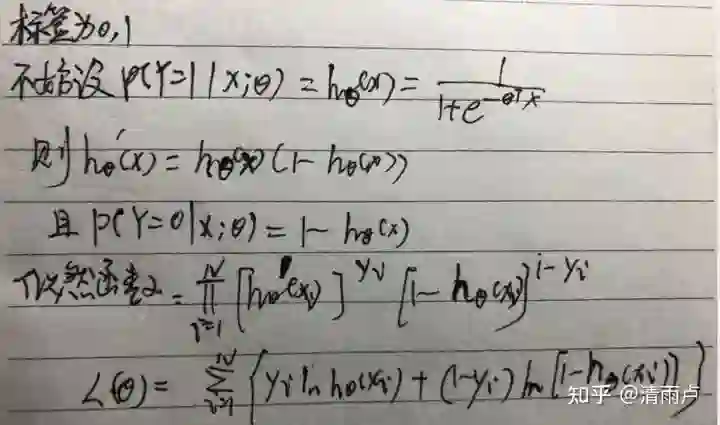 标签为0,1
不妨设 P(Y=1|X;θ) = hθ(x) = 1/(1+e^(-θᵀx))
则 hθ'(x) = hθ(x)(1-hθ(x))
且 P(Y=0|X;θ) = 1-hθ(x)
似然函数 = ∏_{i=1}^{N} [hθ(xi)]^{yi} [1-hθ(xi)]^{1-yi}
L(θ) = ∑_{i=1}^{N} {yi ln hθ(xi) + (1-yi) ln [1-hθ(xi)]}
知乎 @清雨卢